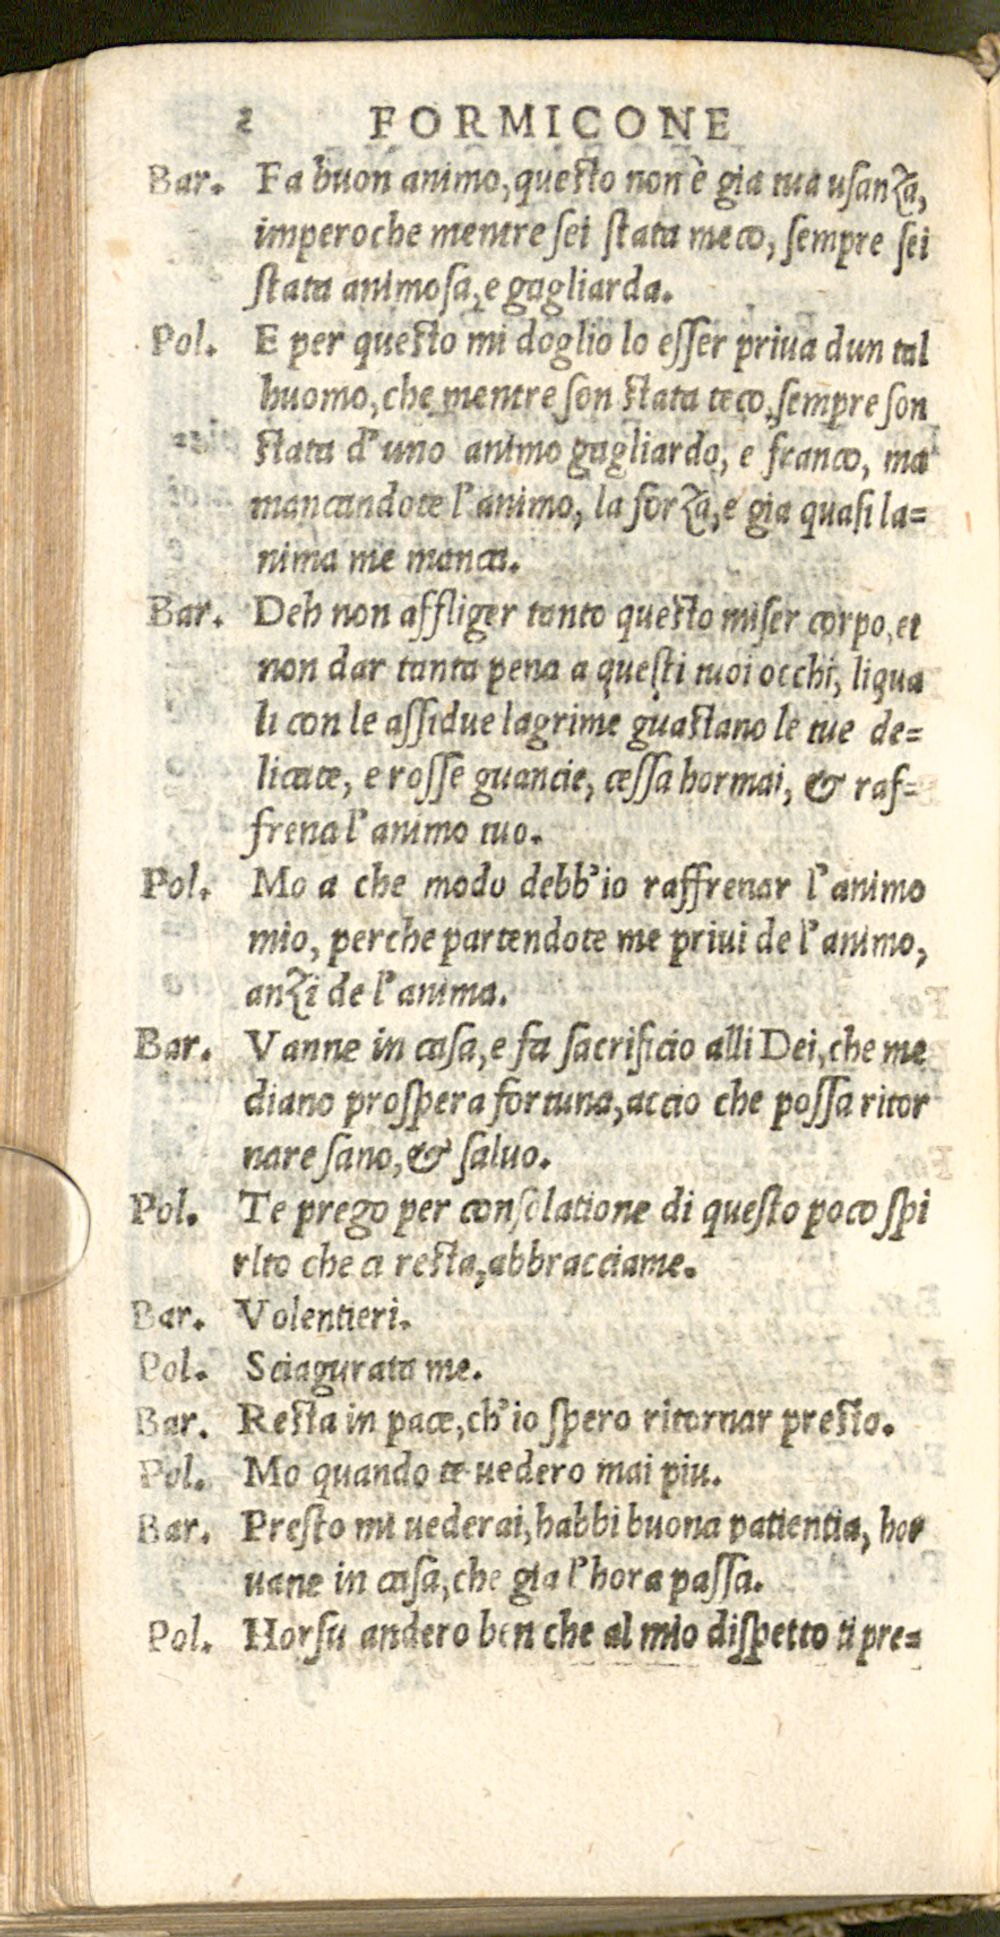 2 FORMICONE
Bar. Fa buon animo, questo non è gia tua usanza,
imperoche mentre sei stata meco, sempre sei
stata animosa, e gagliarda.
Pol. E per questo mi doglio lo esser priua dun tal
huomo, che mentre son stata teco, sempre son
stata d'uno animo gagliardo, e franco, ma
mancandote l'animo, la forza, e gia quasi la=
nima me manca.
Bar. Deh non affliger tanto questo miser corpo, et
non dar tanta pena a questi tuoi occhi, liqua
li con le assidue lagrime guastano le tue de=
licate, e rosse guancie, cessa hormai, & raf=
frena l'animo tuo.
Pol. Mo a che modo debb'io raffrenar l'animo
mio, perche partendote me priui de l'animo,
anzi de l'anima.
Bar. Vanne in casa, e fa sacrificio alli Dei, che me
diano prospera fortuna, accio che possa ritor
nare sano, & saluo.
Pol. Te prego per consolatione di questo poco spi
rito che ci resta, abbracciame.
Bar. Volentieri.
Pol. Sciagurata me.
Bar. Resta in pace, ch'io spero ritornar presto.
Pol. Mo quando te uedero mai piu.
Bar. Presto mi uederai, habbi buona patientia, hor
uane in casa, che gia l'hora passa.
Pol. Horsu andero ben che al mio dispetto ti pre=